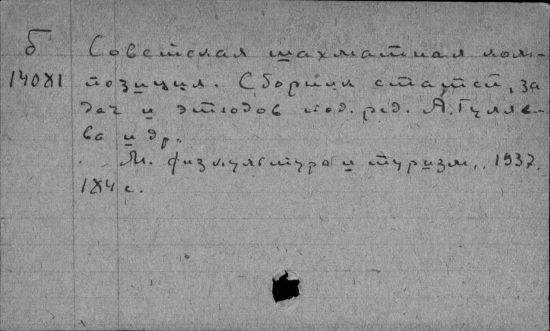 Б Советская шахматная ком-
14081 позиция. Сборник статей, за
дач и этюдов под. ред. А. Гуляе-
ва и др.
М. физкультура и туризм, 1937.
184 с.